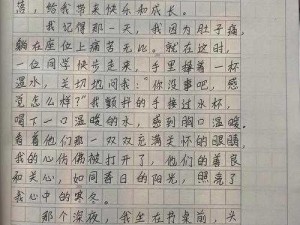 落，给我带来快乐和成长。
我记得那一天，我因为肚子痛，
躺在座位上痛苦无比。就在这时，
一位同学快步走来，手里拿着一杯
温水，关切地问我："你没事吧，感
觉怎么样？"我颤抖的手接过水杯，
喝下一口温暖的水，感到胸口温暖。
看着他们那一双双充满关怀的眼睛，
我的心仿佛被打开了，他们的善良
和关心，如同春日的阳光，照亮了
我心中的寒冬。
那个深夜，我坐在书桌前，头